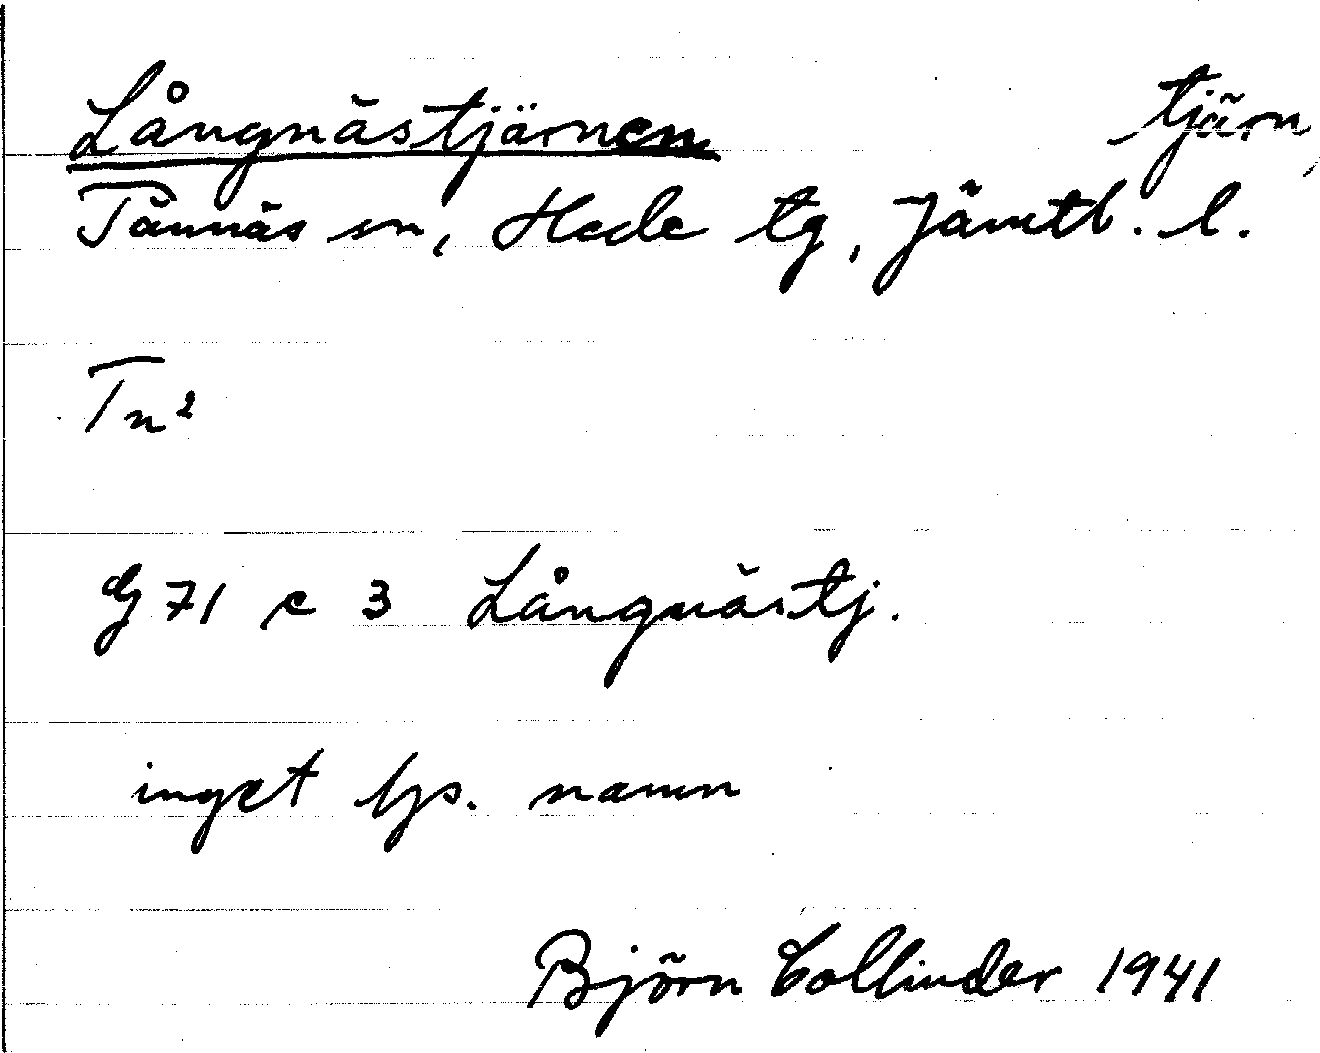 Långnästjärnen tjärn,
Tännäs sn, Hede tg, Jämtl. l.
Tn²
G 71 c 3 Långnästj.
inget lps. namn
Björn Collinder 1941